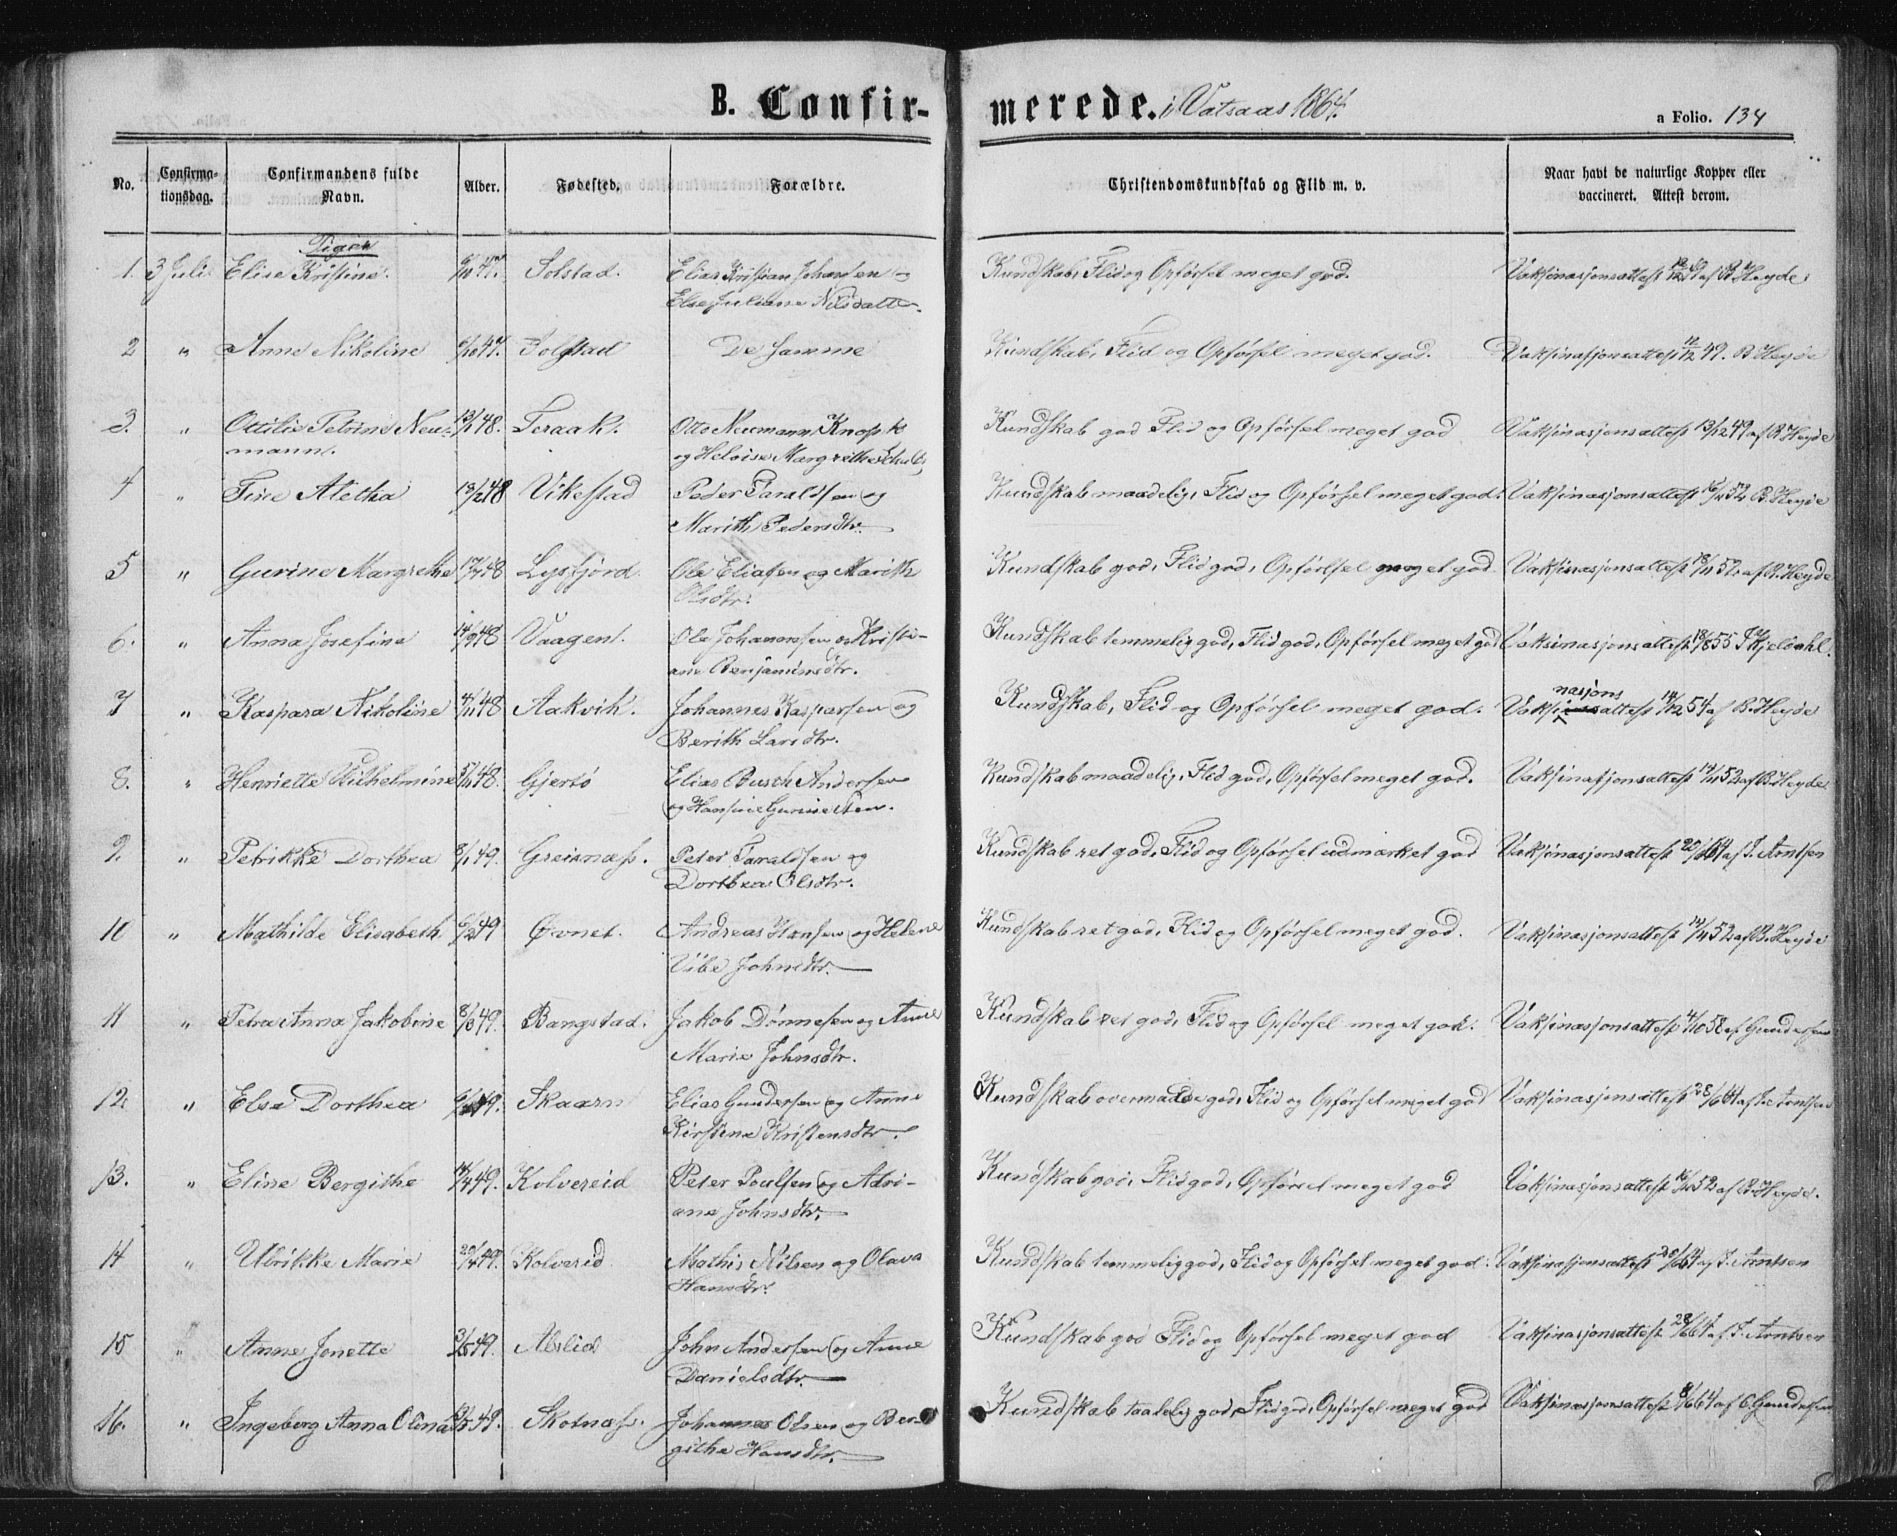 B. Confirmerede. i Vatsaas 1864. a Folio. 134
No. Confirmationsdag. Confirmandens fulde Navn. Alder. Fødested. Forældre. Christendomskundskab og Flid m. v. Naar havt de naturlige Kopper eller vaccineret. Attest derom.
Piger
1. 3 Juli Elise Kristine. 47. Solstad. Elias Kristian Johansen og Kundskab, Flid og Opførsel meget god. Vaksinasjonsattest 12/12 49 af B. Heyde.
Else Juliane Nilsdatter.
2 " Anne Nikoline 47. Solstad De samme Kundskab, Flid og Opførsel meget god. Vaksinasjonsattest 12/12 49. B. Heyde
3. " Ottilie Petrine Neu- 48. Teraak. Otto Neumann Knoph Kundskab god Flid og Opførsel meget god Vaksinasjonsattest 13/12 49 af B. Heyde
mann. og Heloise Margrethe
4 " Tine Aletha 13/2 48 Vikestad Peder Taraldsen og Kundskab maadelig, Flid og Opførsel meget god. Vaksinasjonsattest 52 B. Heyde
Marith Pedersdtr.
5 " Gurine Margrethe 48 Lysfjord Ole Eliasen og Marith Kundskab god, Flid god, Opførsel meget god. Vaksinasjonsattest 18/11 52 af B. Heyde
Olsdtr.
6. " Anna Josefine 14/9 48 Vaagen. Ole Johannessen og Kristi- Kundskab temmelig god, Flid god, Opførsel meget god Vaksinasjonsattest 18/8 55 Kjeldahl.
ane Benjaminsdtr.
7 " Kaspara Nikoline 4/11 48 Aakvik. Johannes Kaspersen og Kundskab, Flid og Opførsel meget god. Vaksinasjonsattest 14/12 54 af B. Heyde
Berith Larsdtr.
8. " Henriette Wilhelmine 48. Gjersø Elias Busch Andersen Kundskab maadelig, Flid god, Opførsel meget god. Vaksinasjonsattest 52 af B. Heyde
og Hansine Gurine
9. " Petrikke Dorthea 8/1 49. Greisnæss. Peter Taraldsen og Kundskab ret god, Flid og Opførsel udmærket god Vaksinasjonsattest 64 af J. Arntsen
Dorthea Olsdtr.
10 " Mathilde Elisabeth 6/2 49 Øvnet. Andreas Hansen og Helene Kundskab ret god, Flid og Opførsel meget god. Vaksinasjonsattest 52 af B. Heyde
Vibe Johnsdtr.
11 " Petra Anna Jakobine 8/3 49. Bangstad. Jakob Dønnesen og Anne Kundskab ret god, Flid og Opførsel meget god. Vaksinasjonsattest 4/10 58 af Gundersen
Marie Johnsdtr.
12. " Else Dorthea 49. Skaarn Elias Gundersen og Anne Kundskab overmaade god, Flid og Opførsel meget god Vaksinasjonsattest 28/6 64 af J. Arntsen
Kirstine Kristensdtr.
13. " Eline Bergithe 49. Kolvereid Peter Poulsen og Adri- Kundskab god, Flid god, Opførsel meget god Vaksinasjonsattest 52 af B. Heyde.
ane Johnsdtr.
14 " Ulrikke Marie 20/4 49. Kolvereid Mathis Nilsen og Olava Kundskab temmelig god, Flid og Opførsel meget god. Vaksinasjonsattest 64 af J. Arntsen
Hansdtr.
15 " Anne Jonette 3/5 49. Abslid John Andersen og Anne Kundskab god Flid og Opførsel meget god Vaksinasjonsattest 28/6 64 af J. Arntsen
Danielsdtr.
16. " Ingeberg Anna Olina 49. Skotnæss. Johannes Olsen og Ber- Kundskab taalelig god, Flid god, Opførsel meget god Vaksinasjonsattest 8/6 64 af Gundersen
githe Hansdtr.